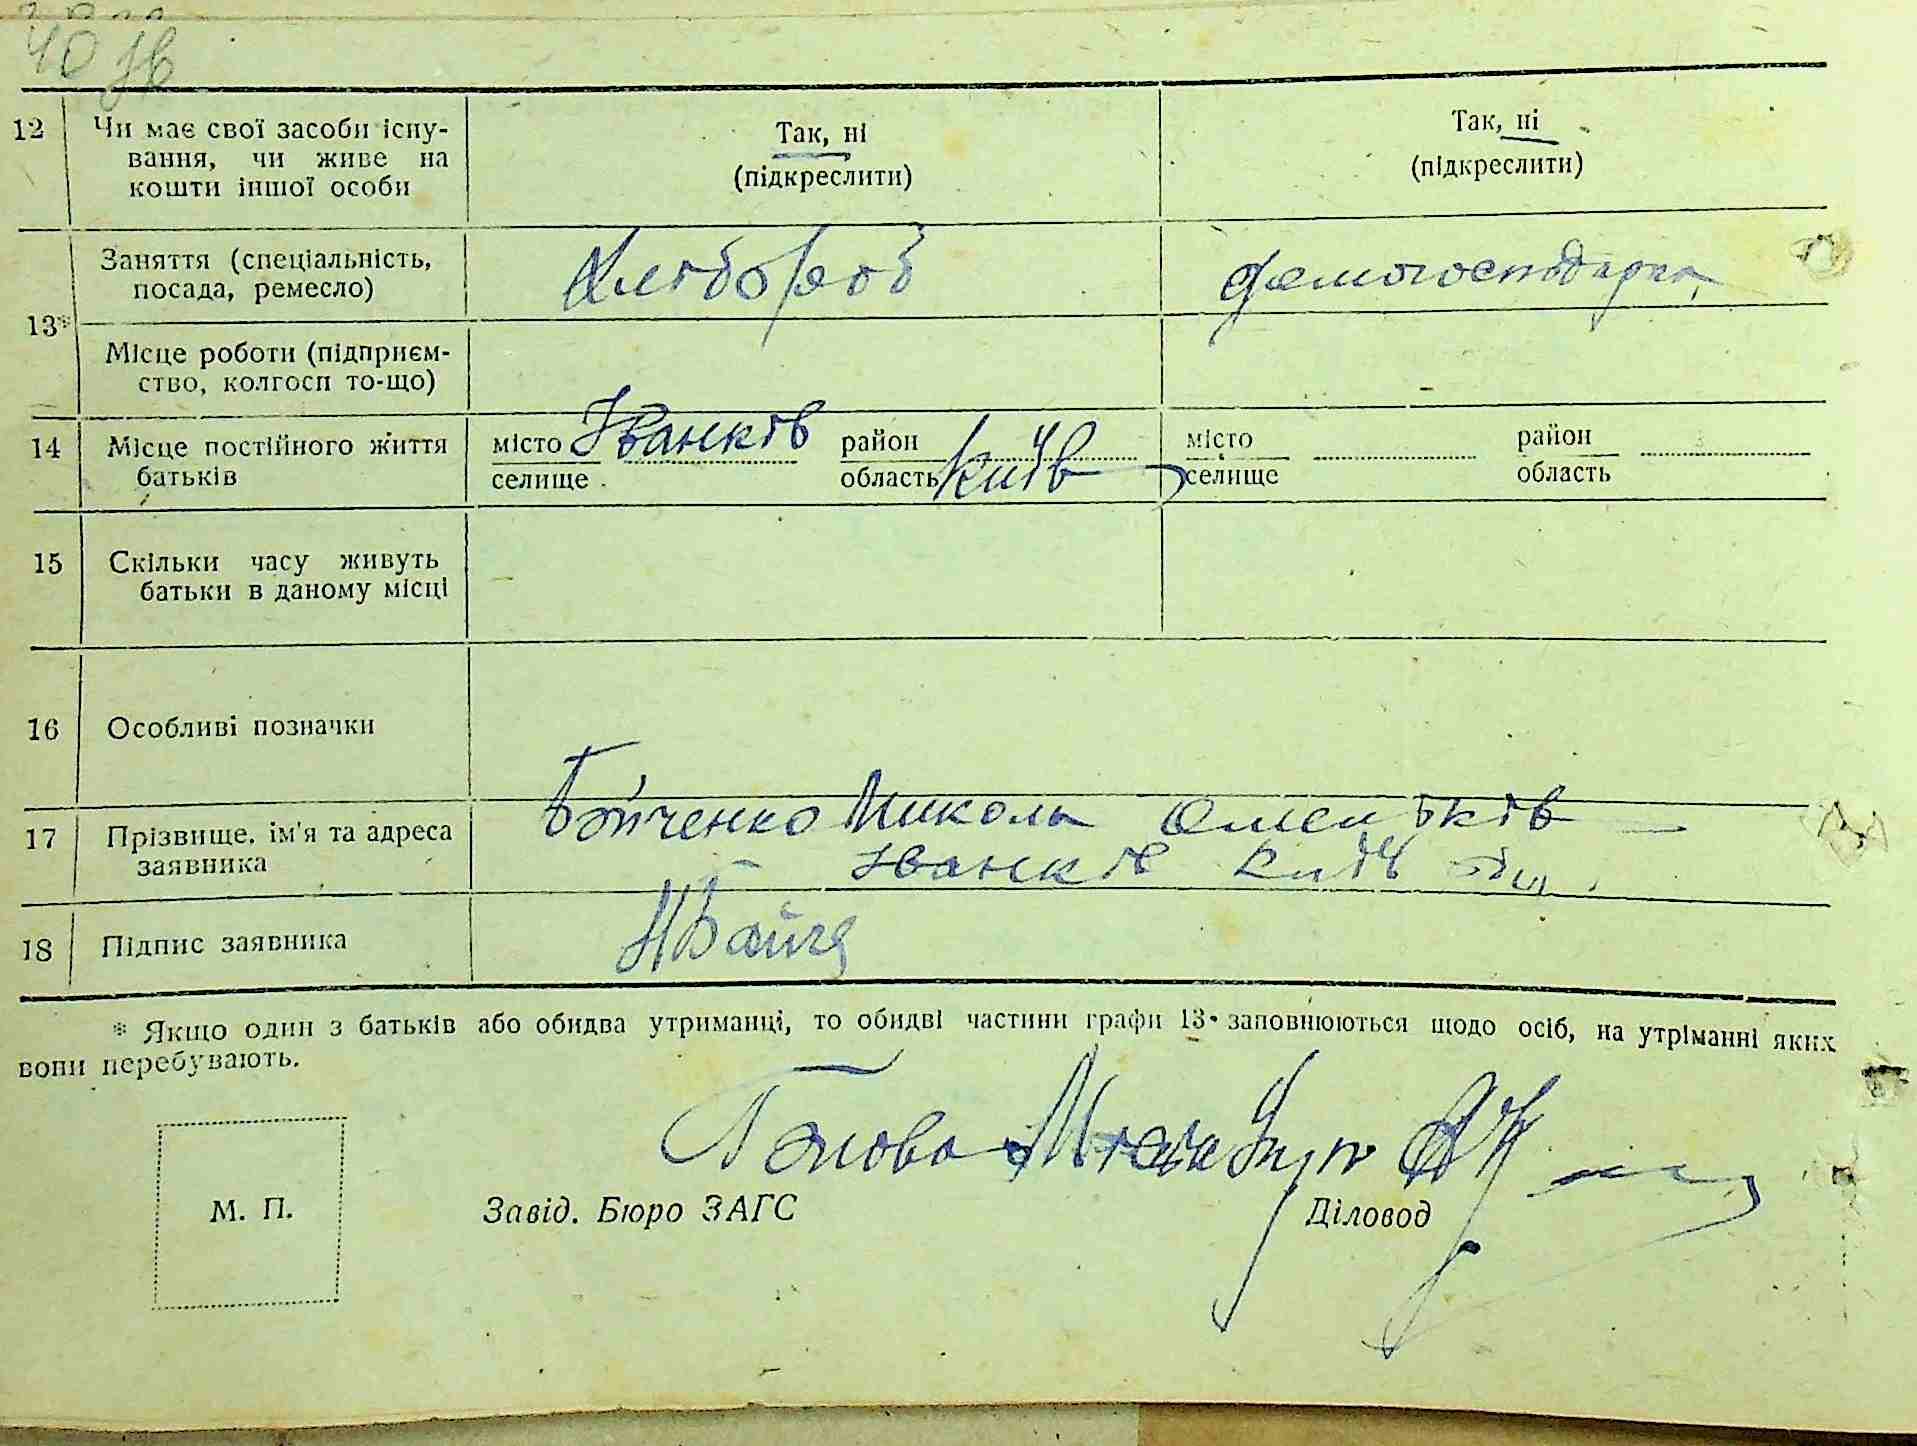 40 зв
12 Чи має свої засоби існу-
вання, чи живе на
кошти іншої особи
Так, ні
(підкреслити)
Так, ні
(підкреслити)
13*
Заняття (спеціальність,
посада, ремесло)
Хлібороб
Домогосподарка
Місце роботи (підприєм-
ство, колгосп то-що)
14 Місце постійного життя
батьків
місто Іванків район
селище область Київ
місто район
селище область
15 Скільки часу живуть
батьки в даному місці
16 Особливі позначки
17 Прізвище, ім'я та адреса
заявника
Бойченко Микола
Іванків Київ
18 Підпис заявника
НБойч
* Якщо один з батьків або обидва утриманці, то обидві частини графи 13 заповнюються щодо осіб, на утріманні яких
вони перебувають.
Голова
М. П. Завід. Бюро ЗАГС Діловод